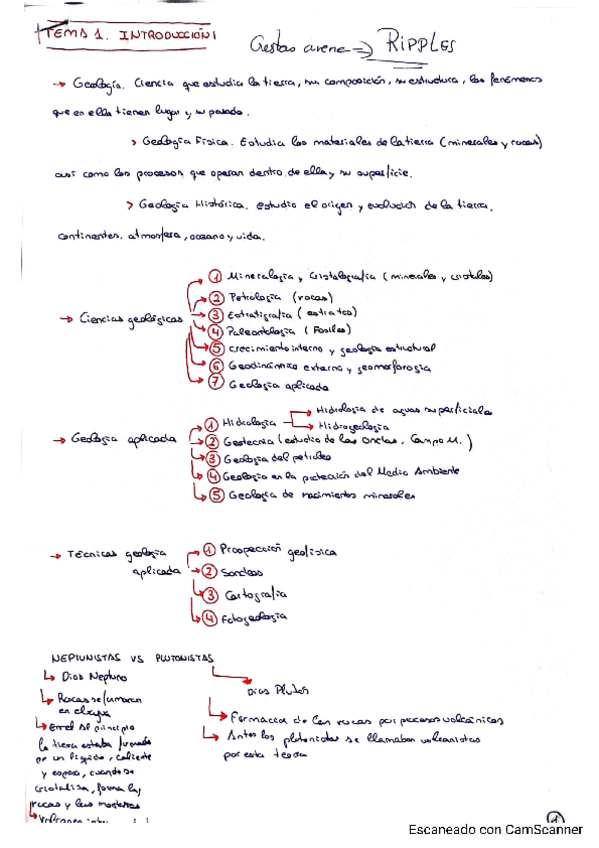 TEMA 1. INTRODUCCIÓN
Crestas arena => RIPPLES
→ Geología. Ciencia que estudia la tierra, su composición, su estructura, los fenómenos
que en ella tienen lugar y su pasado.
> Geología Física. Estudia los materiales de la tierra (minerales y rocas)
así como los procesos que operan dentro de ella y su superficie.
> Geología Histórica. estudia el origen y evolución de la tierra,
continentes, atmosfera, oceano y vida.
→ Ciencias geológicas
① Mineralogia y Cristalografia (minerales y cristales)
② Petrología (rocas)
③ Estratigrafia (estratos)
④ Paleontologia (Fosiles)
⑤ crecimiento interno y geologia estructural
⑥ Geodinámica externa y geomorfologia
⑦ Geología aplicada
→ Geología aplicada
① Hidrologia
→ Hidrologia de aguas superficiales
→ Hidrogeologia
② Geotecnia (estudio de las ondas, Campo M.)
③ Geologia del petroleo
④ Geología en la protección del Medio Ambiente
⑤ Geología de yacimientos minerales
→ Técnicas geología
aplicada
① Prospección geofisica
② Sondeos
③ Cartografia
④ Fotogeología
NEPTUNISTAS VS PLUTONISTAS
↳ Dios Neptuno
↳ Rocas se forman
en el agua
↳ En el principio
la tierra estaba formada
por un líquido, caliente
y espeso, cuando se
cristaliza, forma las
rocas y las montañas
↳ Volcanes
Dios Plutós
↳ Formacion de las rocas por procesos volcánicos
↳ Antes los plutonistas se llamaban vulcanistas
por esta teoría
1
Escaneado con CamScanner